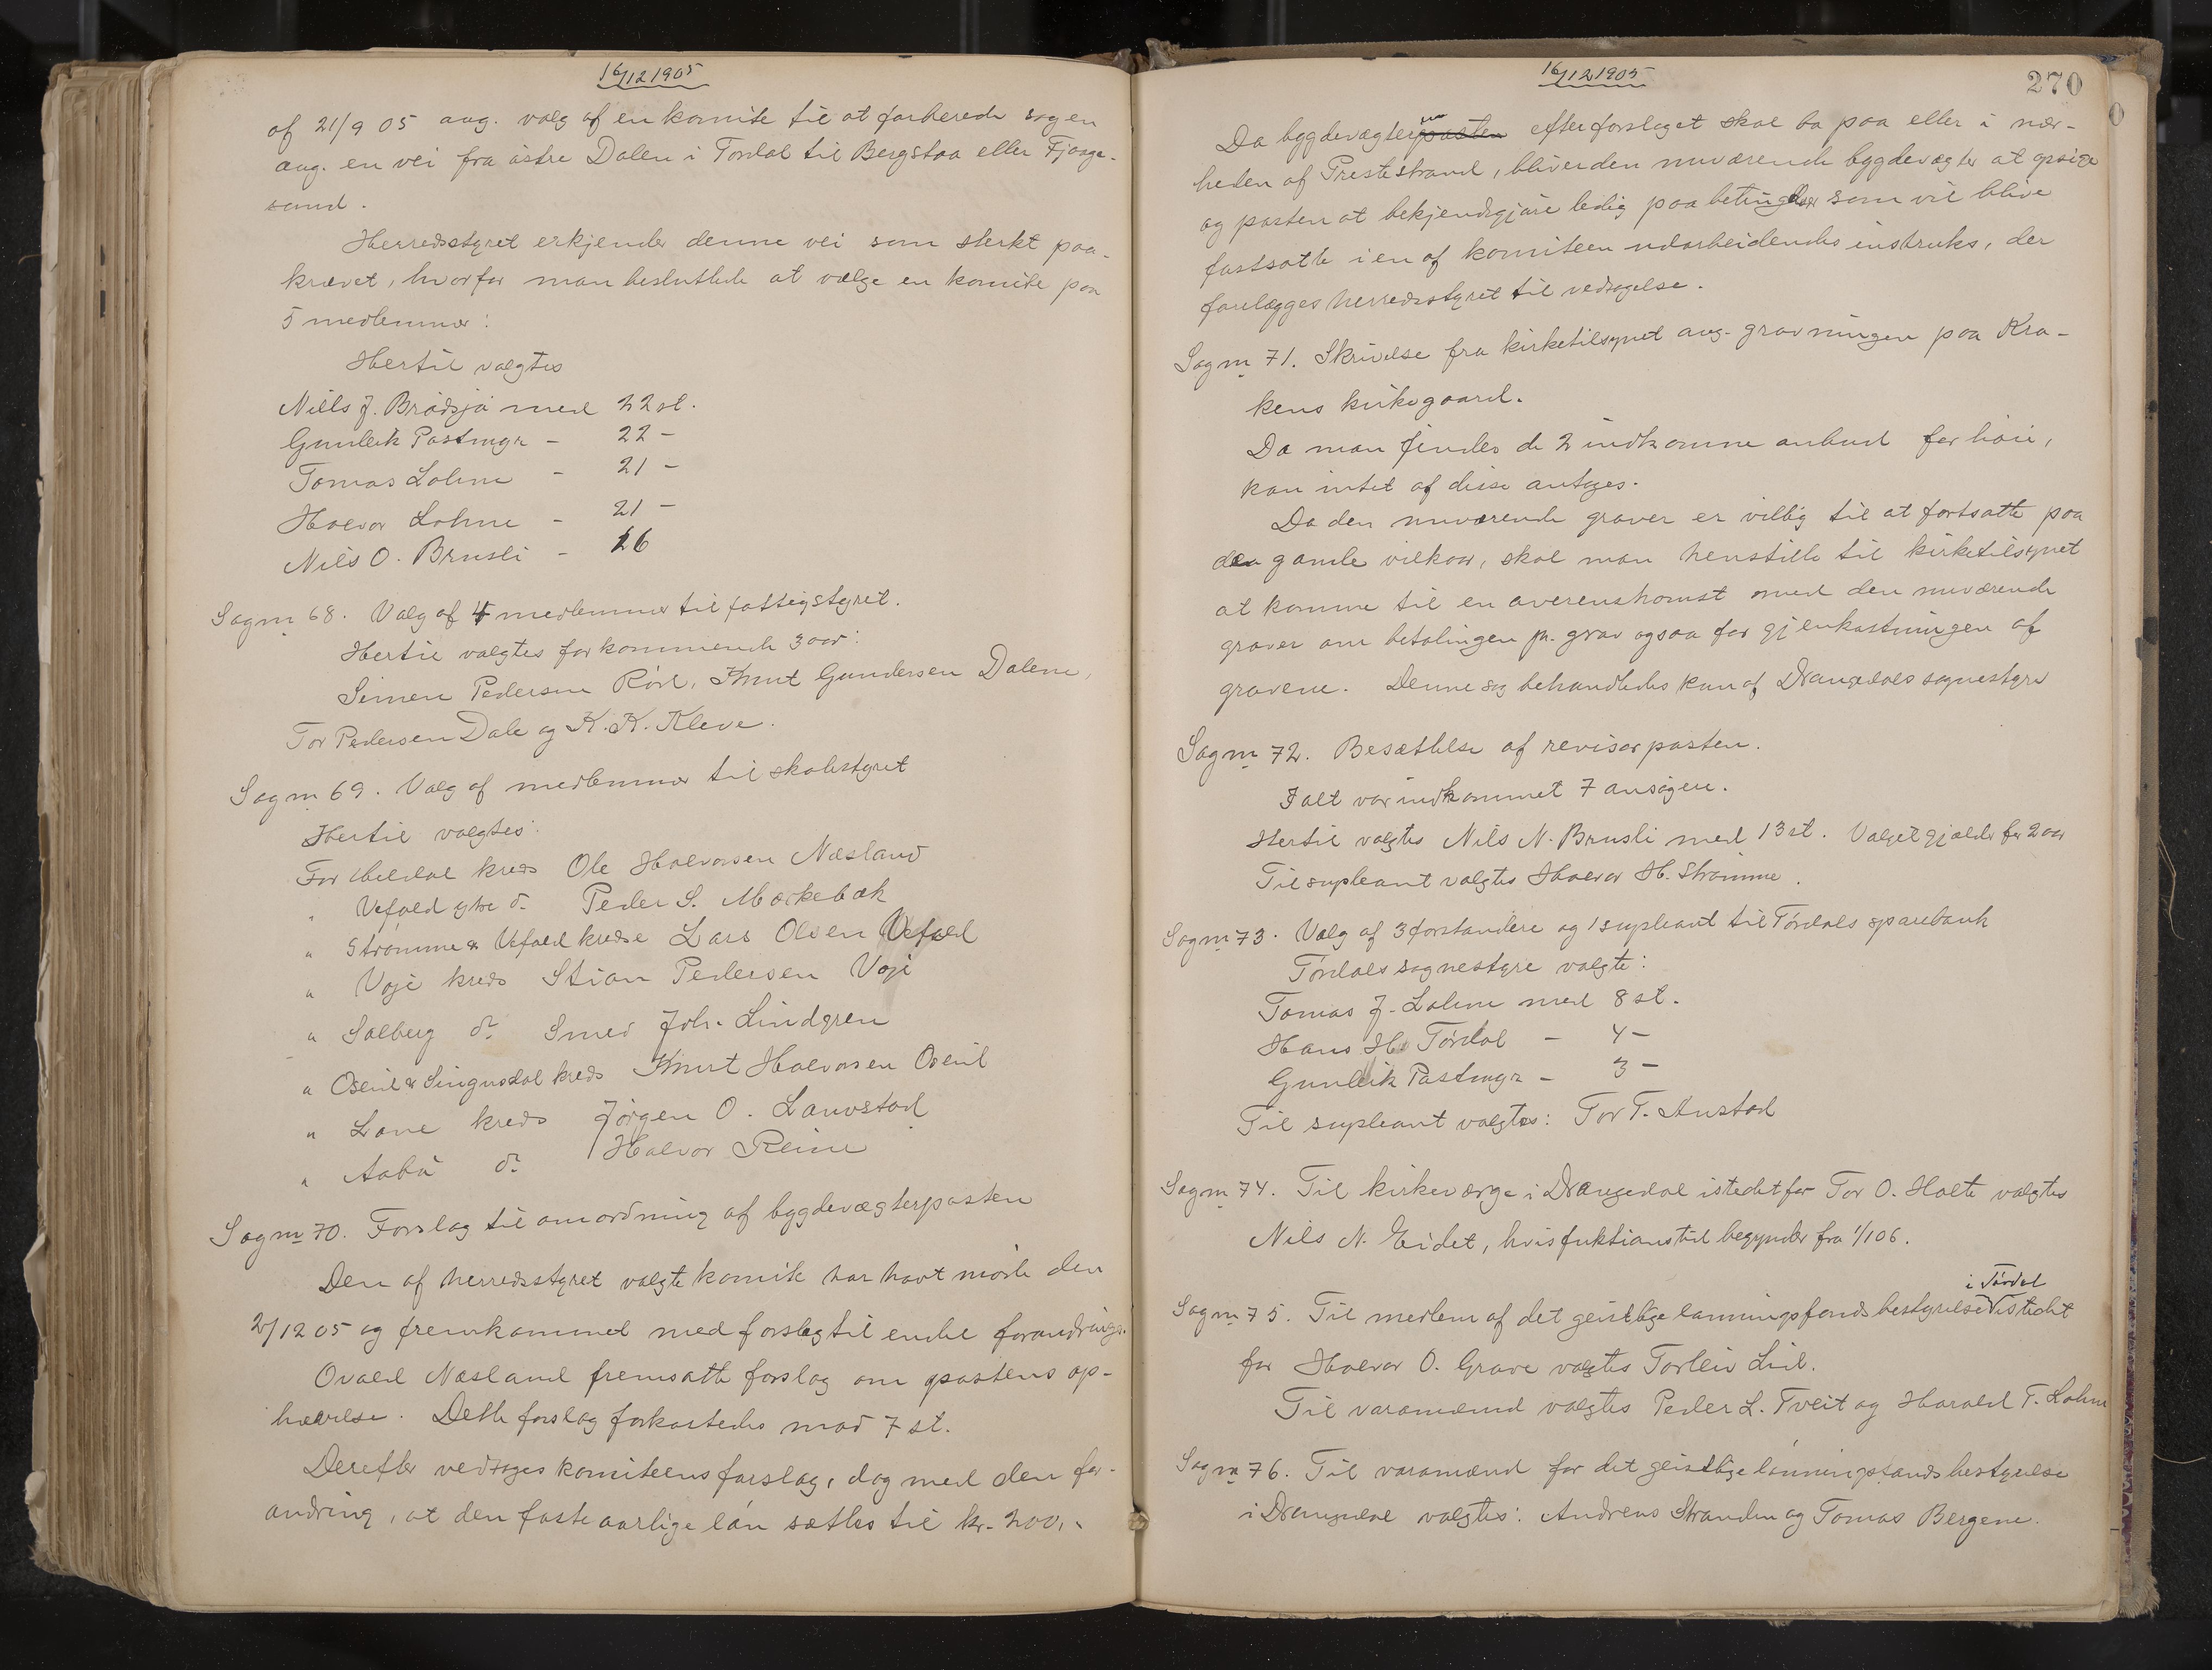 16/12 1905
af 21/9 05 ang. valg af en komite til at forberede sagen
ang. en vei fra østre Dalen i Tordal til Bergstaa eller Fjaage-
sund.
Herredsstyret erkjender denne vei som sterkt paa-
krævet, hvorfor man besluttede at vælge en komite paa
5 medlemmer:
Hertil valgtes
Nills J. Brødsjø med 22 st.
Gunleik Pastmyr - 22 -
Tomas Lohne - 21 -
Halvor Lohne - 21 -
Nils O. Brusli - 16
Sag nr 68. Valg af 4 medlemmer til fattigstyret.
Hertil valgtes for kommende 3 aar:
Simen Pedersen Rød, Knut Gundersen Dalene,
Tor Pedersen Dale og K. K. Kleve.
Sag nr 69. Valg af medlemmer til skolestyret
Hertil valgtes:
For kreds Ole Halvorsen Næsland
" Vefald ytre do Peder S. Mærkebæk
" Strømme & Vefald kredse Lars Olsen Vefald
" Voje kreds Stian Pedersen Voje
" Solberg do Smed Joh. Lindgren
" Oseid & Singusdal kreds Knut Halvorsen Oseid
" Lone kreds Jørgen O. Lauvstad
" Aabø do Halvor Reine
Sag nr 70. Forslag til omordning af bygdevægterposten
Den af herredsstyret valgte komite har havt møde den
2/12 05 og fremkommet med forslag til endel forandringr.
Ovald Næsland fremsatte forslag om postens op-
hævelse. Dette forslag forkastedes mod 7 st.
Derefter vedtoges komiteens forslag, dog med den for-
andring, at den faste aarlige løn sættes til kr. 200,-
16/12 1905
270
Da bygdevægteren efter forslaget skal bo paa eller i nær-
heden af Prestestrand, bliver den nuværende bygdevægter at opsige
og posten at bekjendtgjøre ledig paa betingelser som vil blive
fastsatte i en af komiteen udarbeidendes instruks, der
forelægges herredsstyret til vedtagelse.
Sag nr 71. Skrivelse fra kirketilsynet ang. gravningen paa Kra-
kens kirkegaard.
Da man findes de 2 indkomne anbud for høie,
kan intet af disse antages.
Da den nuværende graver er villig til at fortsætte paa
den gamle vilkaar, skal man henstille til kirketilsynet
at komme til en overenskomst med den nuværende
graver om betalingen pr. grav ogsaa for gjenkastningen af
gravene. Denne sag behandledes kun af Drangedals sognestyre
Sag nr 72. Besættelse af revisorposten.
Ialt var indkommet 7 ansøgere.
Hertil valgtes Nils N. Brusli med 13 st. Valget gjælder for 2 aar
Til supleant valgtes Halvor H. Strømme.
Sag nr 73. Valg af 3 forstandere og 1 supleant til Tørdals sparebank
Tørdals sognestyre valgte:
Tomas J. Lohne med 8 st.
Hans H. Tørdal - 4 -
Gunleik Pastmyr - 3 -
Til supleant valgtes: Tor T. Austad
Sag nr 74. Til kirkeværge i Drangedal istedetfor Tor O. Holte valgtes
Nils N. Eidet, hvis funktionstid begynder fra 1/1 06.
i Tørdal
Sag nr 75. Til medlem af det geistlige lønningsfonds bestyrelse istedet
for Halvor O. Grave valgtes Torleiv Lid.
Til varamænd valgtes Peder L. Tveit og Harald T. Lohne
Sag nr 76. Til varamænd for det geistlige lønningsfonds bestyrelse
i Drangedal valgtes: Andreas Stranden og Tomas Bergene.